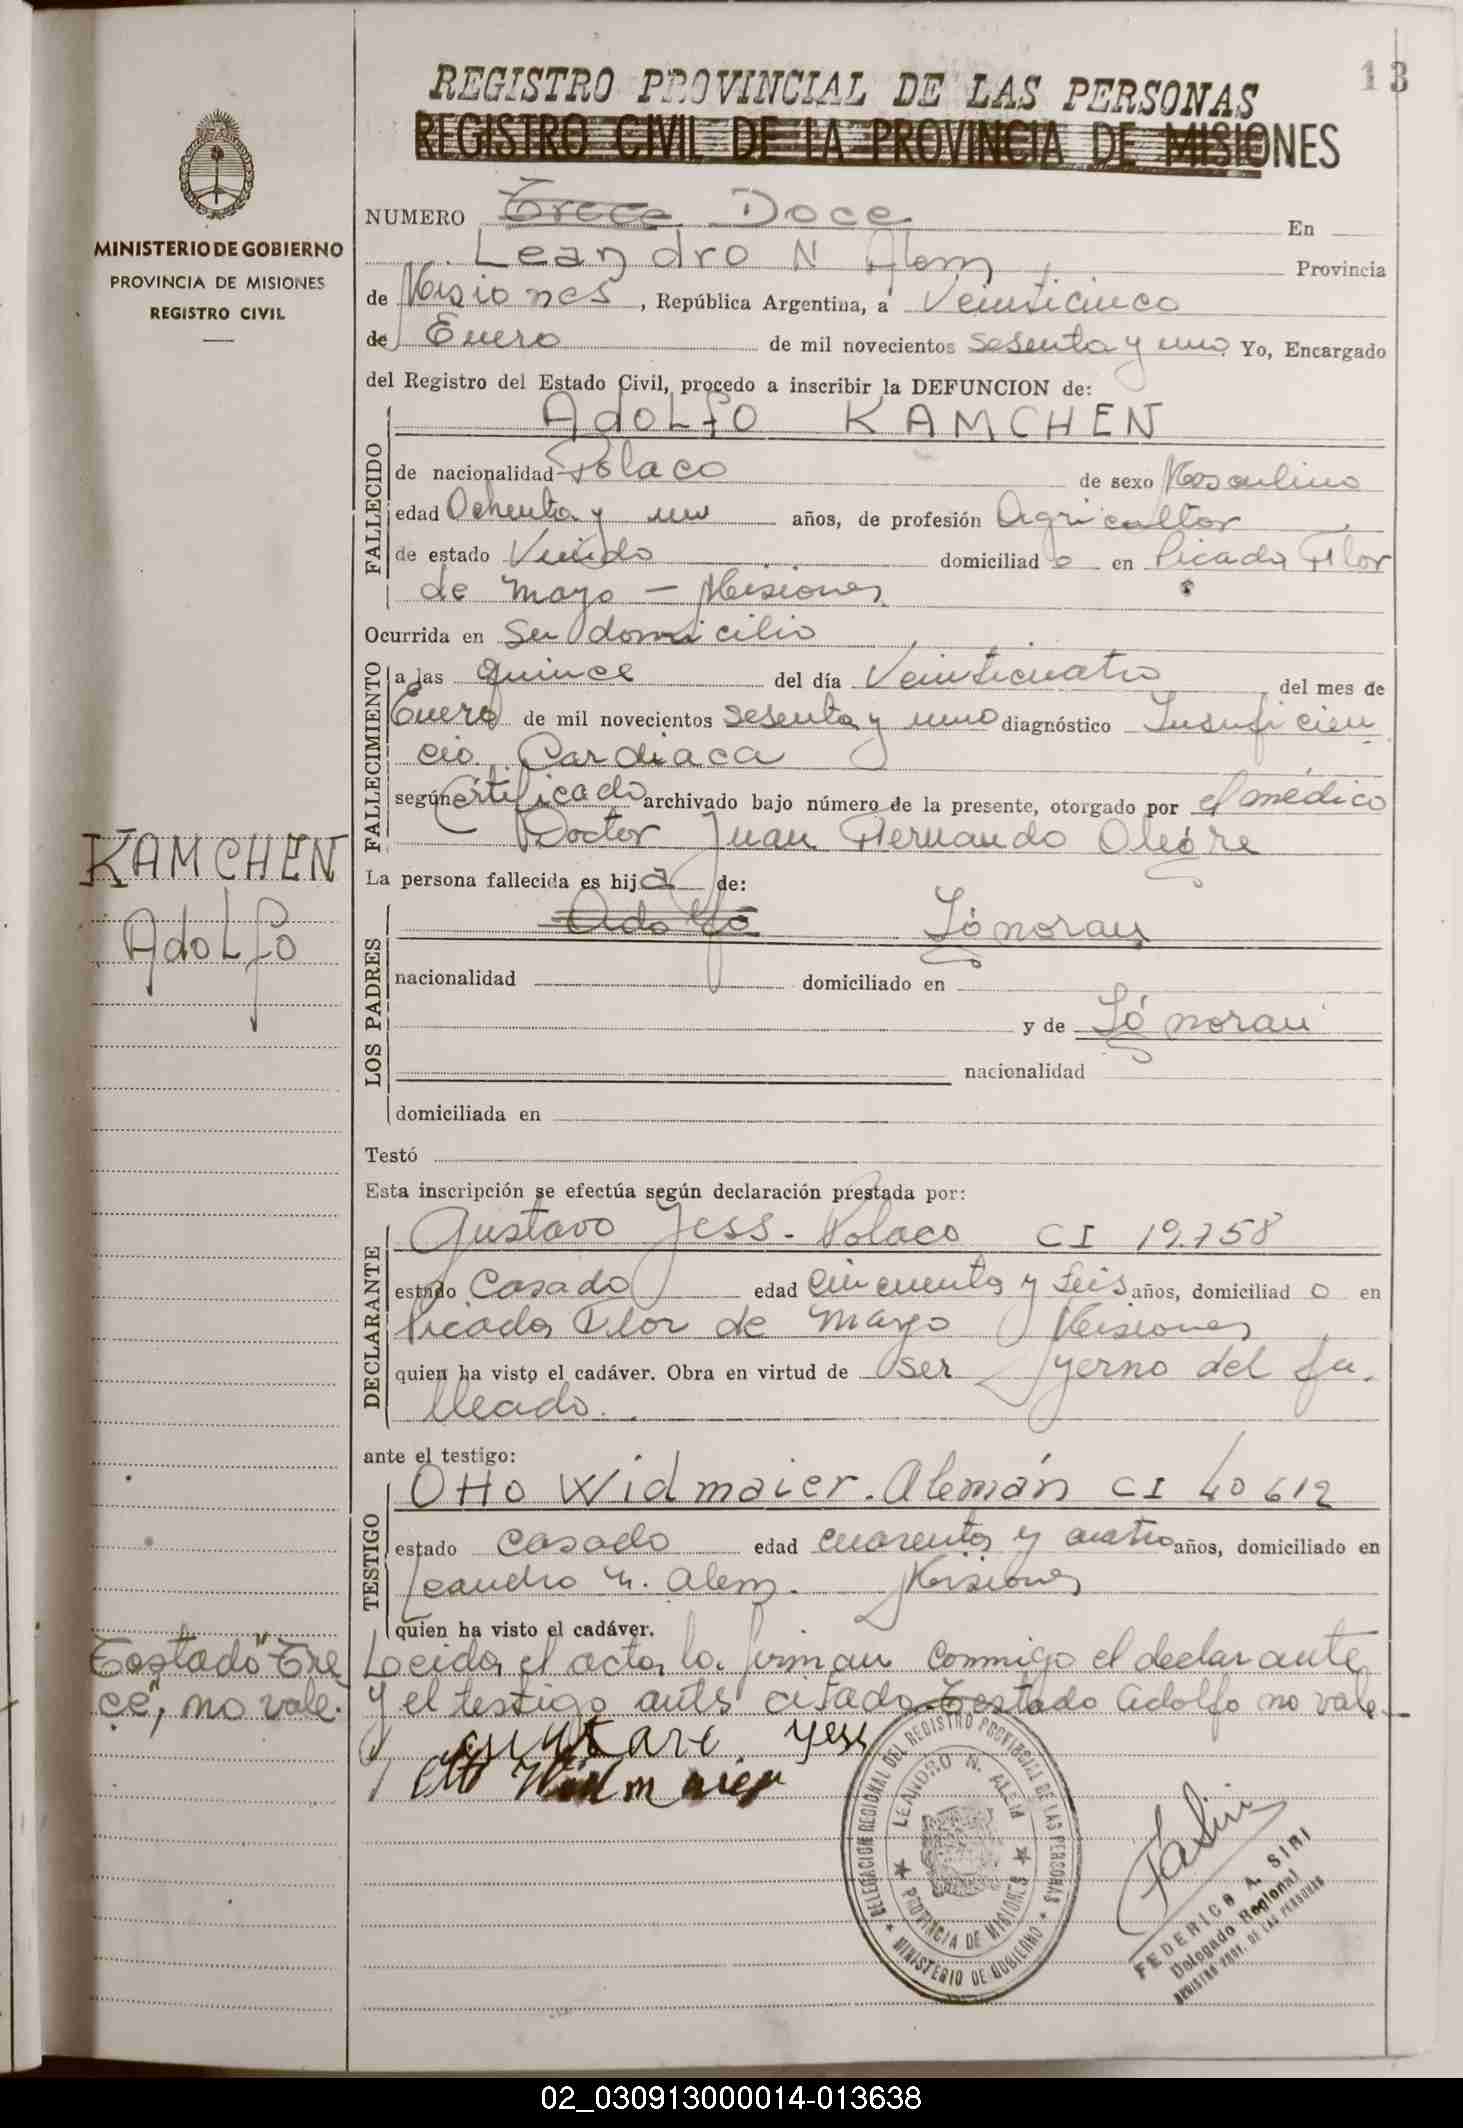 13
REGISTRO PROVINCIAL DE LAS PERSONAS
REGISTRO CIVIL DE LA PROVINCIA DE MISIONES
MINISTERIO DE GOBIERNO
PROVINCIA DE MISIONES
REGISTRO CIVIL
NUMERO Trece Doce En
Leandro N Alem Provincia
de Misiones, República Argentina, a Veinticinco
de Enero de mil novecientos sesenta y uno Yo, Encargado
del Registro del Estado Civil, procedo a inscribir la DEFUNCION de:
FALLECIDO
ADOLFO KAMCHEN
de nacionalidad Polaco de sexo Masculino
edad Ochenta y un años, de profesión Agricultor
de estado Viudo domiciliad o en Picada Flor
de Mayo - Misiones
Ocurrida en Su domicilio
FALLECIMIENTO
a las quince del día Veinticuatro del mes de
Enero de mil novecientos sesenta y uno diagnóstico Insuficien
cia Cardiaca
según Certificado archivado bajo número de la presente, otorgado por el médico
Doctor Juan Hernando
KAMCHEN
Adolfo
La persona fallecida es hij de:
LOS PADRES
Adolfo Ignoran
nacionalidad domiciliado en
y de Ignoran
nacionalidad
domiciliada en
Testó
Esta inscripción se efectúa según declaración prestada por:
DECLARANTE
Gustavo Jess - Polaco CI 19.758
estado Casado edad Cincuenta y seis años, domiciliad o en
Picada Flor de Mayo Misiones
quien ha visto el cadáver. Obra en virtud de ser yerno del fa-
llecido.
ante el testigo:
TESTIGO
Otto Widmaier. Alemán CI 40612
estado casado edad cuarenta y cuatro años, domiciliado en
Leandro N. Alem. Misiones
quien ha visto el cadáver.
Testado "Tre
ce", no vale.
Leida el acta la firman conmigo el declarante
y el testigo antes citado Testado Adolfo no vale
Yess
Otto Widmaier
DELEGACION REGIONAL DEL REGISTRO PROVINCIAL DE LAS PERSONAS
LEANDRO N. ALEM
PROVINCIA DE MISIONES
MINISTERIO DE GOBIERNO
FEDERICO A. SIRI
Delegado Regional
REGISTRO PROV. DE LAS PERSONAS
02_030913000014-013638